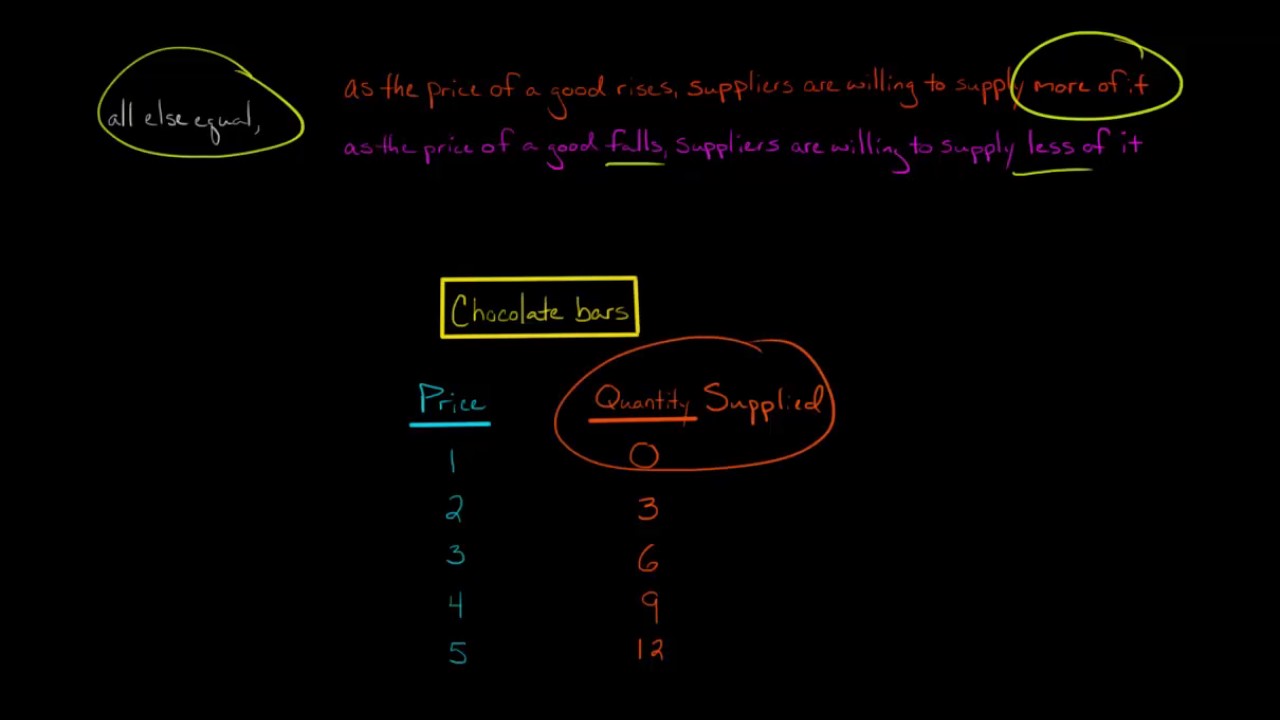 as the price of a good rises, suppliers are willing to supply more of it
all else equal,
as the price of a good falls, suppliers are willing to supply less of it
Chocolate bars
Price Quantity Supplied
1 0
2 3
3 6
4 9
5 12